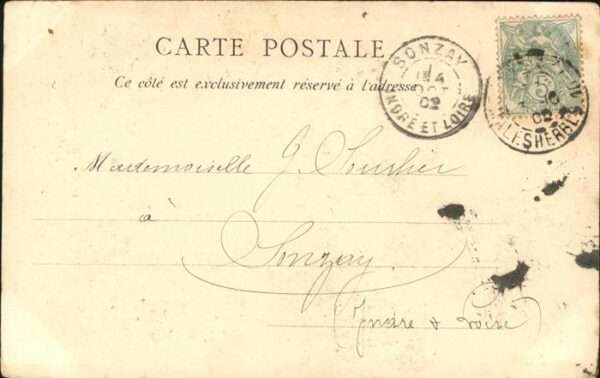 CARTE POSTALE
Ce côté est exclusivement réservé à l'adresse
SONZAY
14
OCT
02
INDRE ET LOIRE
5
02
MALESHERBES
Mademoiselle G. Souchier
à
Sonzay
Indre & Loire